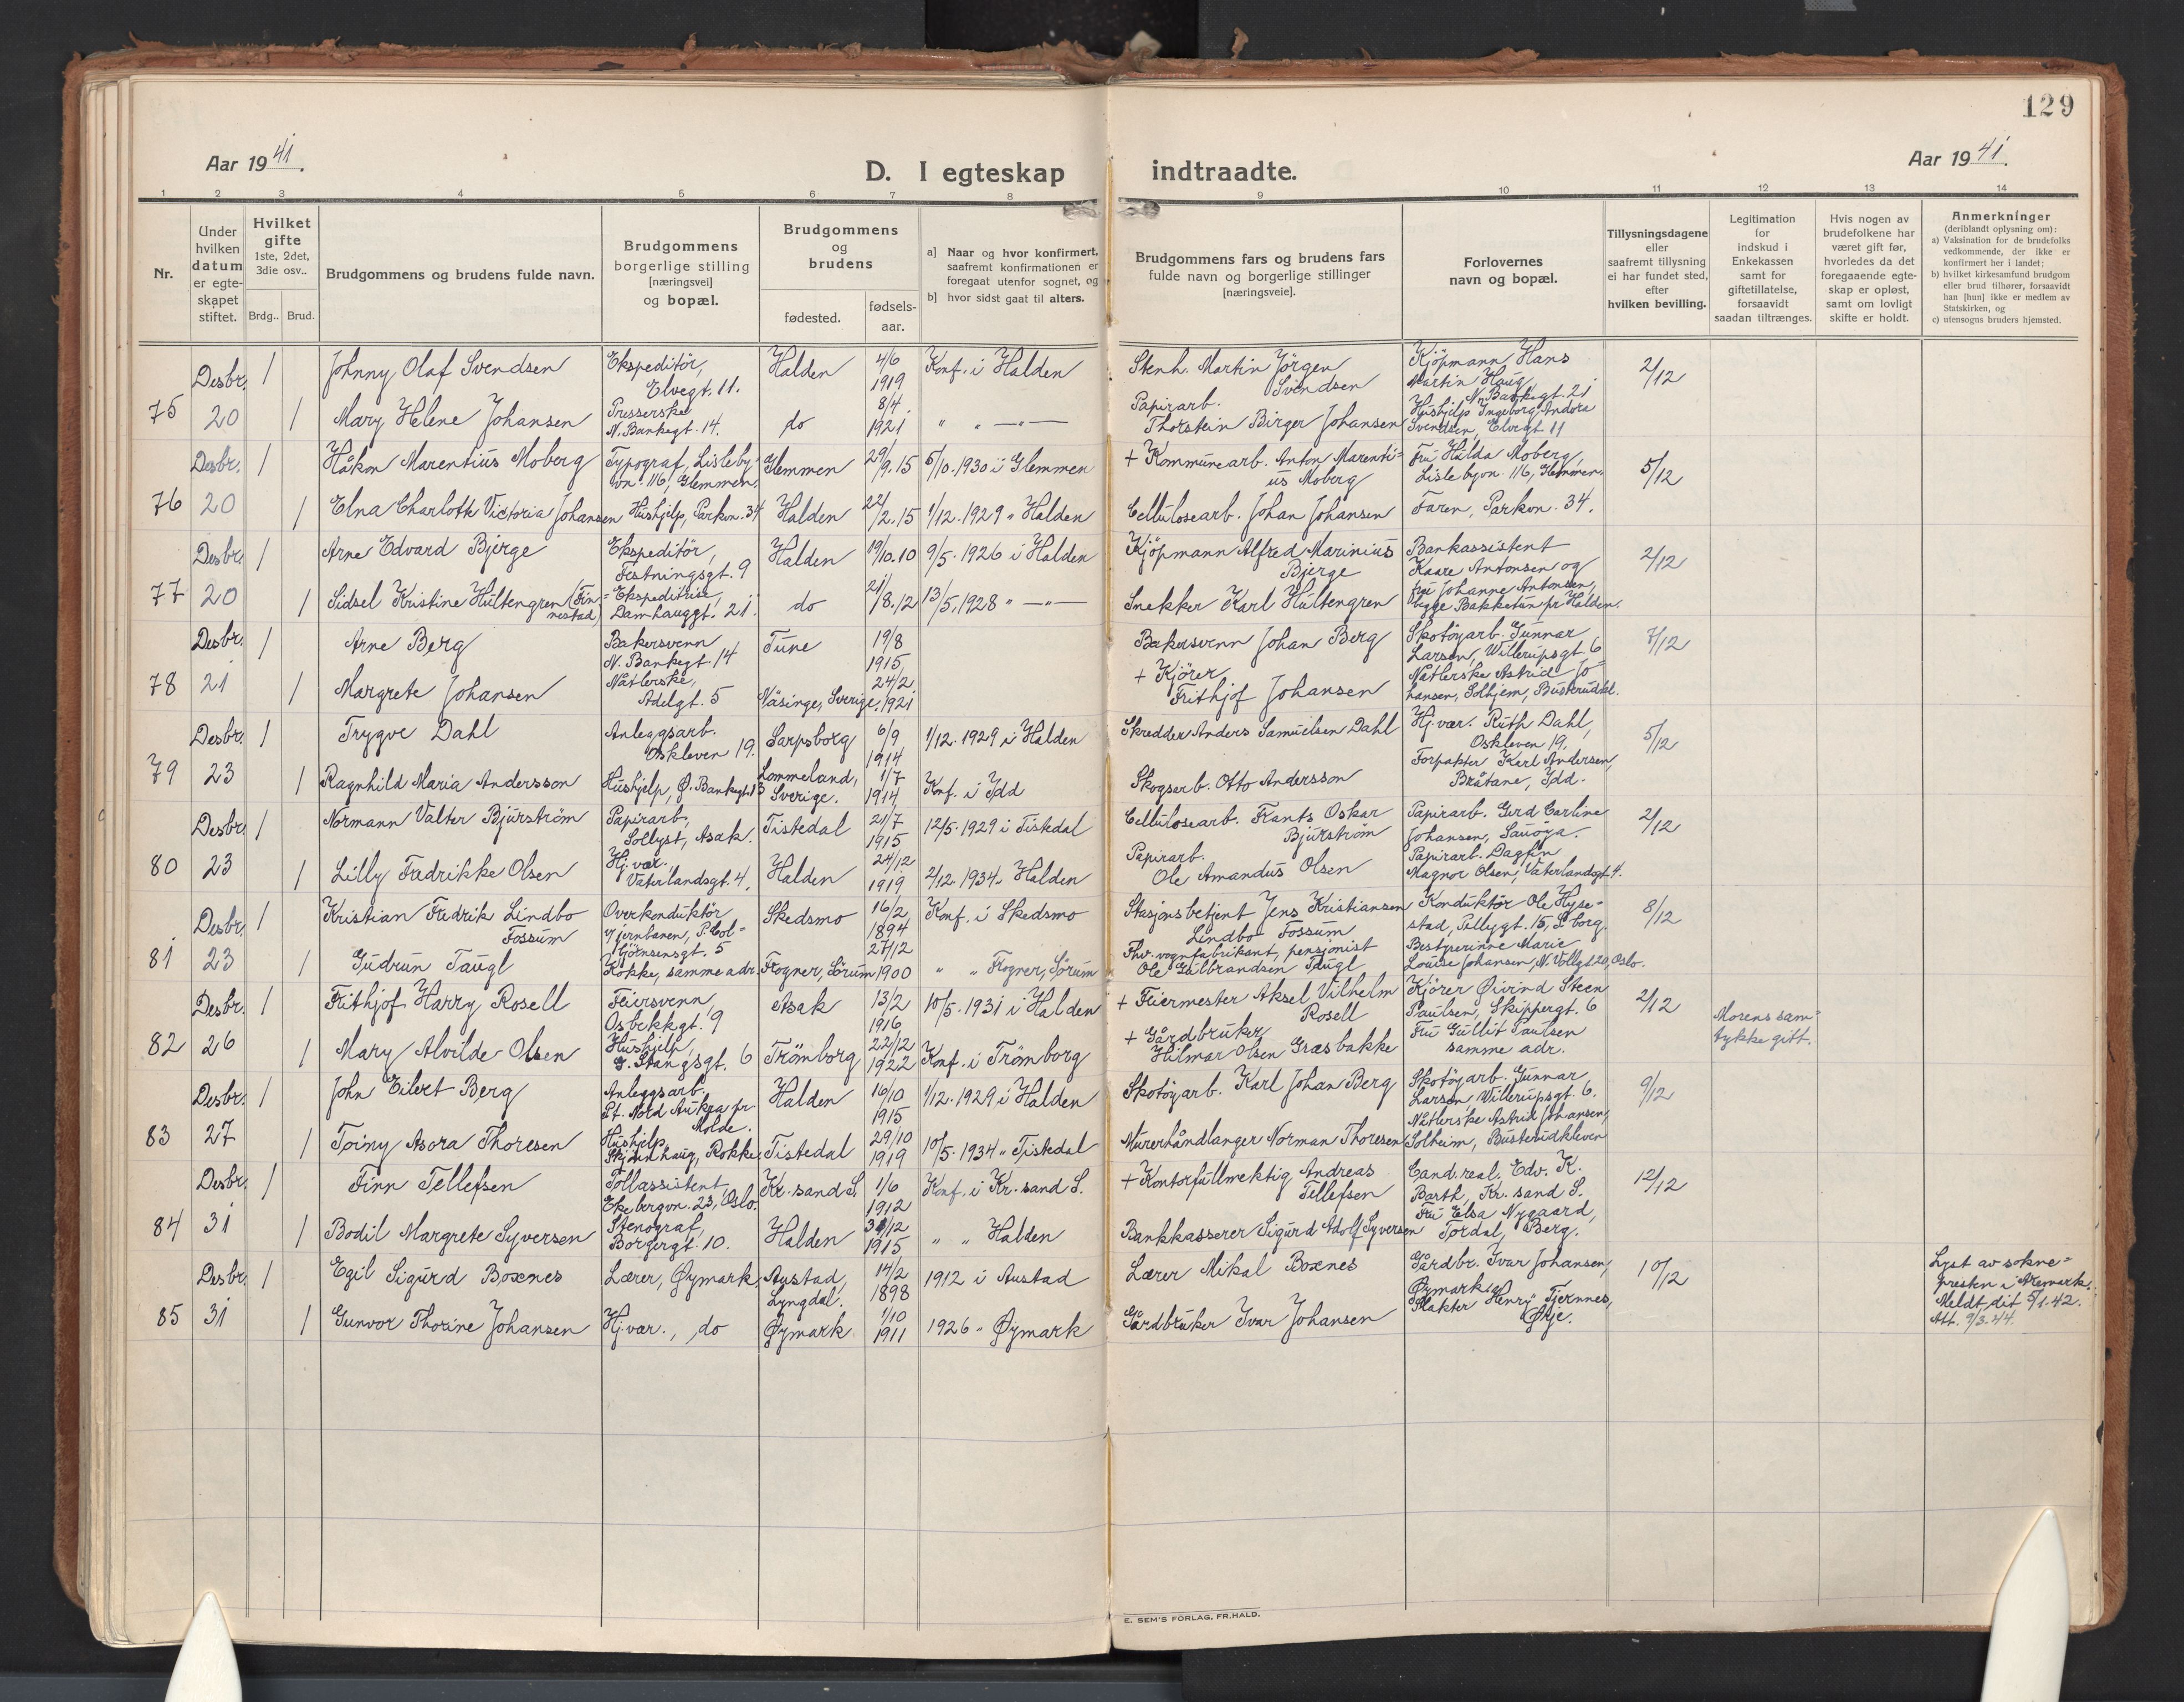 129
Aar 1941.
D. I egteskap indtraadte.
Aar 1941.
1 2 3 4 5 6 7 8 9 10 11 12 13 14
Nr.
Under hvilken datum er egte-skapet stiftet.
Hvilket gifte 1ste, 2det, 3die osv..
Brdg.. Brud.
Brudgommens og brudens fulde navn.
Brudgommens borgerlige stilling [næringsvei] og bopæl.
Brudgommens og brudens
fødested.
fødsels-aar.
a] Naar og hvor konfirmert, saafremt konfirmationen er foregaat utenfor sognet, og
b] hvor sidst gaat til alters.
Brudgommens fars og brudens fars fulde navn og borgerlige stillinger [næringsveie].
Forlovernes navn og bopæl.
Tillysningsdagene eller saafremt tillysning ei har fundet sted, efter hvilken bevilling.
Legitimation for indskud i Enkekassen samt for giftetillatelse, forsaavidt saadan tiltrænges.
Hvis nogen av brudefolkene har været gift før, hvorledes da det foregaaende egte-skap er opløst, samt om lovligt skifte er holdt.
Anmerkninger (deriblandt oplysning om):
a) Vaksination for de brudefolks vedkommende, der ikke er konfirmert her i landet;
b) hvilket kirkesamfund brudgom eller brud tilhører, forsaavidt han [hun] ikke er medlem av Statskirken, og
c) utensogns bruders hjemsted.
Desbr. 1 Johnny Olaf Svendsen Ekspeditör, Elvegt. 11. Halden 4/6 1919 Konf. i Halden Stenh. Martin Jörgen Svendsen Kjöpmann Hans Martin Haug, N. Bankegt. 21 2/12
75 20 1 Mary Helene Johansen Presserske N. Bankegt. 14. do 8/4 1921 " " —"— Papirarb. Thorstein Birger Johansen Hushjelp Ingeborg Andora Svendsen, Elvegt 11
Desbr. 1 Håkon Marentius Moberg Typograf, Lisleby-vn. 116, Glemmen. Glemmen 29/9.15 5/10.1930 i Glemmen + Kommunearb. Anton Marenti=us Moberg Fru Hilda Moberg, Lislebyvn. 116, Glemmen. 5/12
76 20 1 Elna Charlotte Victoria Johansen Hushjelp, Parkvn. 34 Halden 22/2.15 1/12.1929 " Halden Cellulosearb. Johan Johansen Faren, Parkvn. 34.
Desbr. 1 Arne Edvard Bjerge Ekspeditör, Festningsgt. 9 Halden 19/10.10 9/5.1926 i Halden Kjöpmann Alfred Marinius Bjerge Bankassistent Kaare Antonsen og 2/12
77 20 1 Sidsel Kristine Hultengren (Fin=nestad) Ekspeditrise, Damhauggt. 21. do 21/8.12 13/5.1928 " —"— Snekker Karl Hultengren fru Johanne Antonsen, begge Bakketun pr Halden.
Desbr. 1 Arne Berg Bakersvenn N. Bankegt. 14 Tune 19/8 1915 Bakersvenn Johan Berg Skotöyarb. Gunnar Larsen, Willerupsgt. 6 7/12
78 21 1 Margrete Johansen Nåtlerske, Adelgt. 5 Näsinge, Sverige. 24/2 1921 + Kjörer Frithjof Johansen Nåtlerske Astrid Jo=hansen, Solhjem, Busterudkl.
Desbr. 1 Trygve Dahl Anleggsarb. Oskleven 19. Sarpsborg 6/9 1914 1/12.1929 i Halden Skredder Anders Samuelsen Dahl Hj.vær. Ruth Dahl, Oskleven 19. 5/12
79 23 1 Ragnhild Maria Andersson Hushjelp, Ø. Bankegt. 13 Lommeland, Sverige. 1/7 1914 Konf. i Idd Skogsarb. Otto Andersson Forpakter Karl Andersen, Bråtane, Idd.
Desbr. 1 Normann Valter Bjurström Papirarb. Sollyst, Asak. Tistedal 21/7 1915 12/5.1929 i Tistedal Cellulosearb. Frants Oskar Bjurström Papirarb. Gerd Carline Johansen, Sauöya. 2/12
80 23 1 Lilly Fredrikke Olsen Hj.vær. Vaterlandsgt. 4. Halden 24/12 1919 2/12.1934 " Halden Papirarb. Ole Amandus Olsen Papirarb. Dagfin Magnor Olsen, Vaterlandsgt. 4.
Desbr. 1 Kristian Fredrik Lindbo Fossum Overkonduktör v/jernbanen, P. Col=björnsensgt. 5 Skedsmo 16/2 1894 Konf. i Skedsmo Stasjonsbetjent Jens Kristiansen Lindbo Fossum Konduktör Ole Hyse=stad, Pellygt. 15, S.borg. 8/12
81 23 1 Gudrun Taugl Kokke, samme adr. Frogner, Sörum 27/12 1900 " " Frogner, Sörum Fhv. vognfabrikant, pensjonist Ole Gulbrandsen Taugl Bestyrerinne Marie Louise Johansen, N. Vollgt 20, Oslo.
Desbr. 1 Frithjof Harry Rosell Feiersvenn, Osbekkgt. 9 Asak 13/2 1916 10/5.1931 i Halden + Feiermester Aksel Vilhelm Rosell Kjörer Öivind Steen Paulsen, Skippergt. 6 2/12 Morens sam=tykke gitt.
82 26 1 Mary Alvilde Olsen Hushjelp, G. Stangsgt. 6 Trömborg 22/12 1922 Konf. i Trömborg + Gårdbruker Hilmar Olsen Græsbakke Fru Gullit Paulsen samme adr.
Desbr. 1 John Eilert Berg Anleggsarb. Pt. Nord Aukra pr Molde. Halden 16/10 1915 1/12.1929 i Halden Skotöyarb. Karl Johan Berg Skotöyarb. Gunnar Larsen, Willerupsgt. 6. 9/12
83 27 1 Toiny Asora Thoresen Hushjelp, Skjönnhaug, Rokke. Tistedal 29/10 1919 10/5.1934 " Tistedal Murerhåndlanger Norman Thoresen Nåtlerske Astrid Johansen, Solheim, Busterudkleven
Desbr. 1 Finn Tellefsen Tollassistent, Ekebergvn. 23, Oslo. Kr. sand S. 1/6 1912 Konf. i Kr. sand S. + Kontorfullmektig Andreas Tellefsen Cand. real. Edv. K. Barth, Kr. sand S. 12/12
84 31 1 Bodil Margrete Syversen Stenograf, Borgergt. 10. Halden 31/12 1915 " " Halden Bankkasserer Sigurd Adolf Syversen Fru Elsa Nygaard, Tordal, Berg.
Desbr. 1 Egil Sigurd Boxnes Lærer, Øymark Austad, Lyngdal. 14/2 1898 1912 i Austad Lærer Mikal Boxnes Gårdbr. Ivar Johansen, Øymark og 10/12 Lyst av sokne=presten i Aremark. Meldt dit 5/1.42. Att. 9/3.44.
85 31 1 Gunvor Thorine Johansen Hj.vær., do Øymark 1/10 1911 1926 " Øymark Gårdbruker Ivar Johansen Slakter Henry Tjernnes, Ørje.
E. SEM'S FORLAG, FR.HALD.